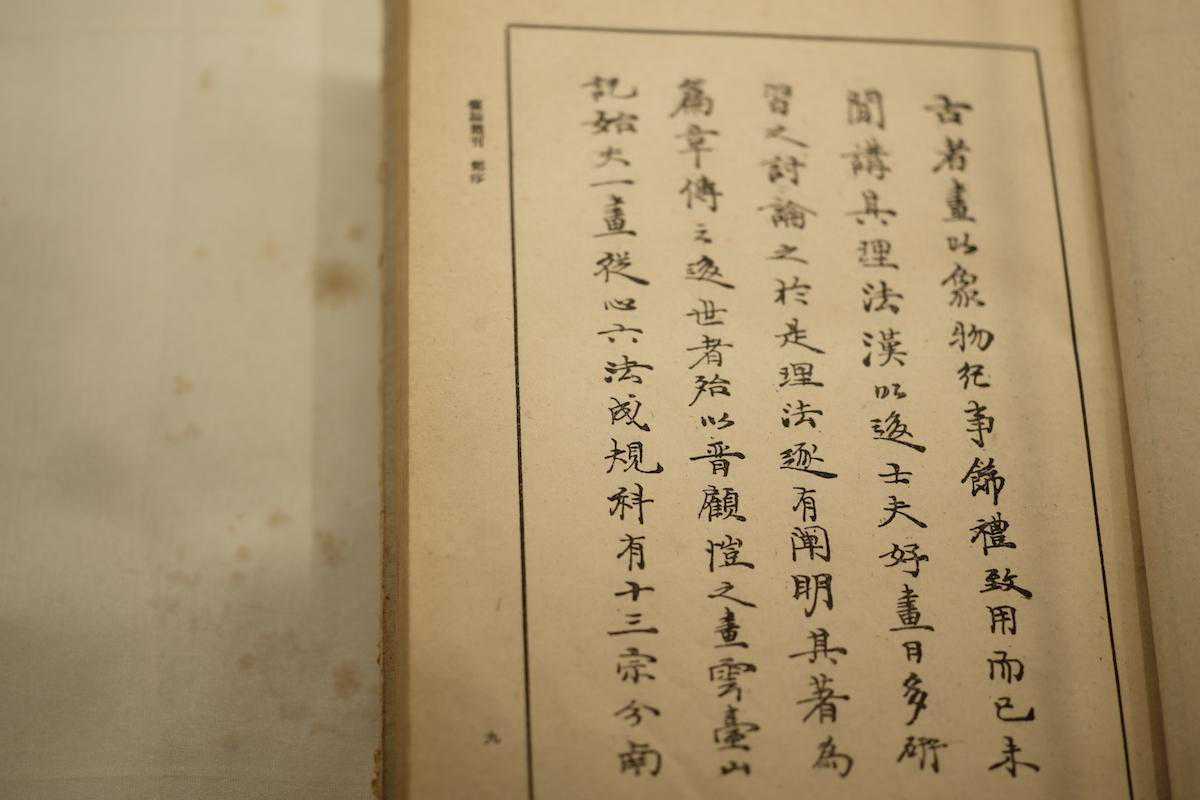 古者畫以象物紀事飾禮致用而已未
聞講其理法漢以後士夫好畫日多研
習之討論之於是理法遂有闡明其著為
篇章傳之後世者殆以晉顧愷之畫雲臺山
記始夫一畫從心六法成規科有十三宗分南
九